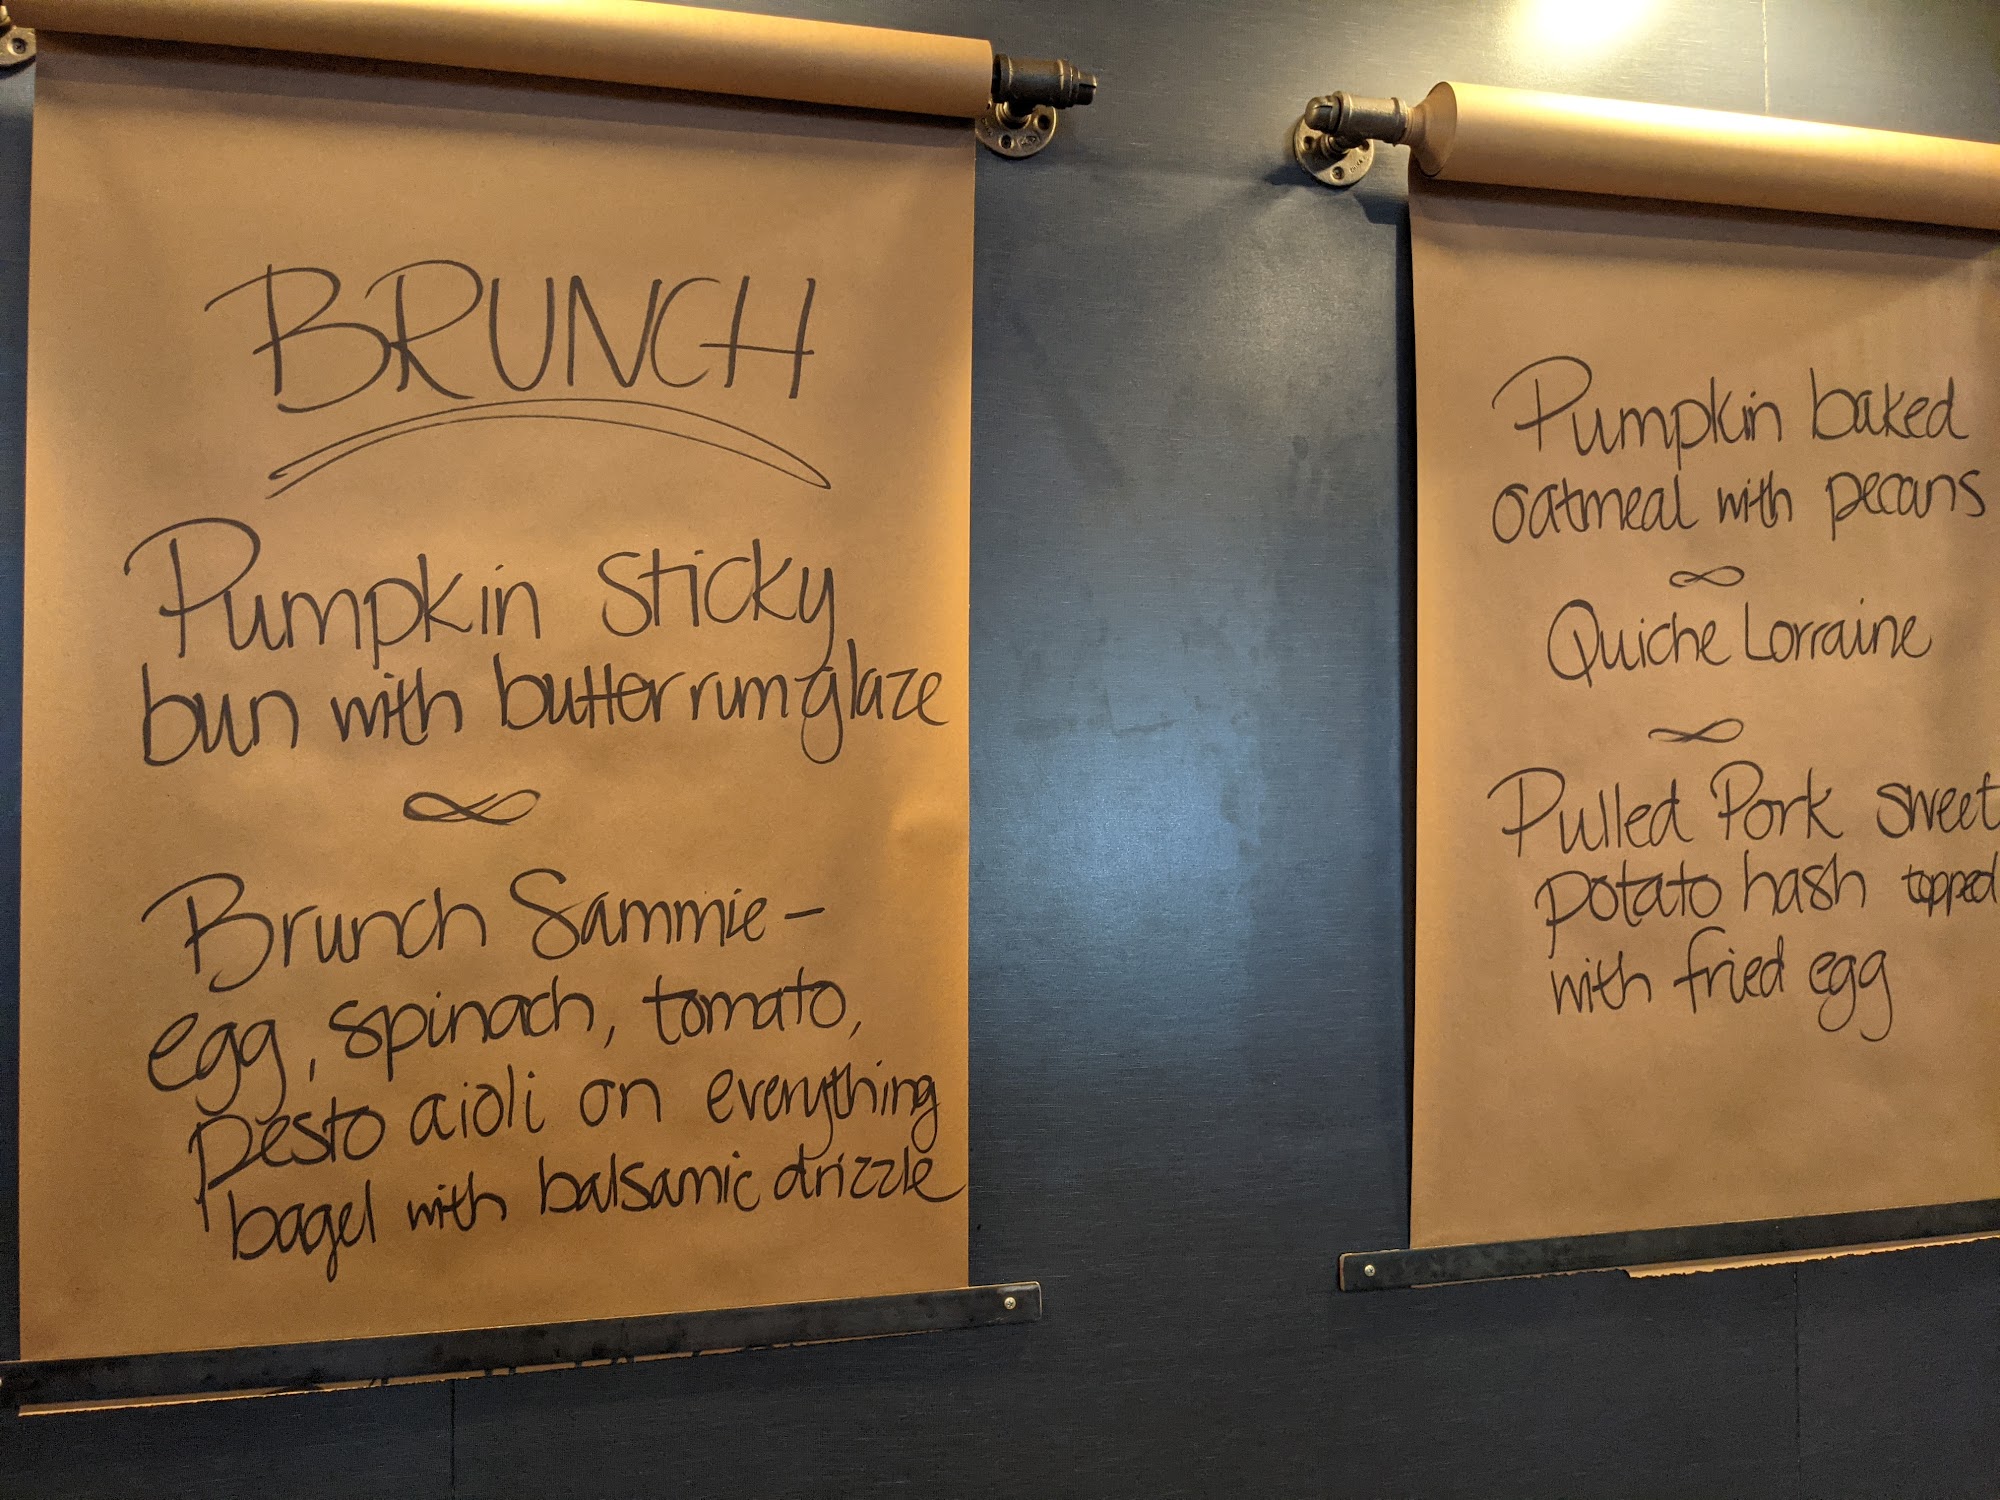 BRUNCH
Pumpkin Sticky
bun with butter rum glaze
Brunch Sammie -
egg, spinach, tomato,
pesto aioli on everything
bagel with balsamic drizzle
Pumpkin baked
oatmeal with pecans
Quiche Lorraine
Pulled Pork sweet
potato hash topped
with fried egg